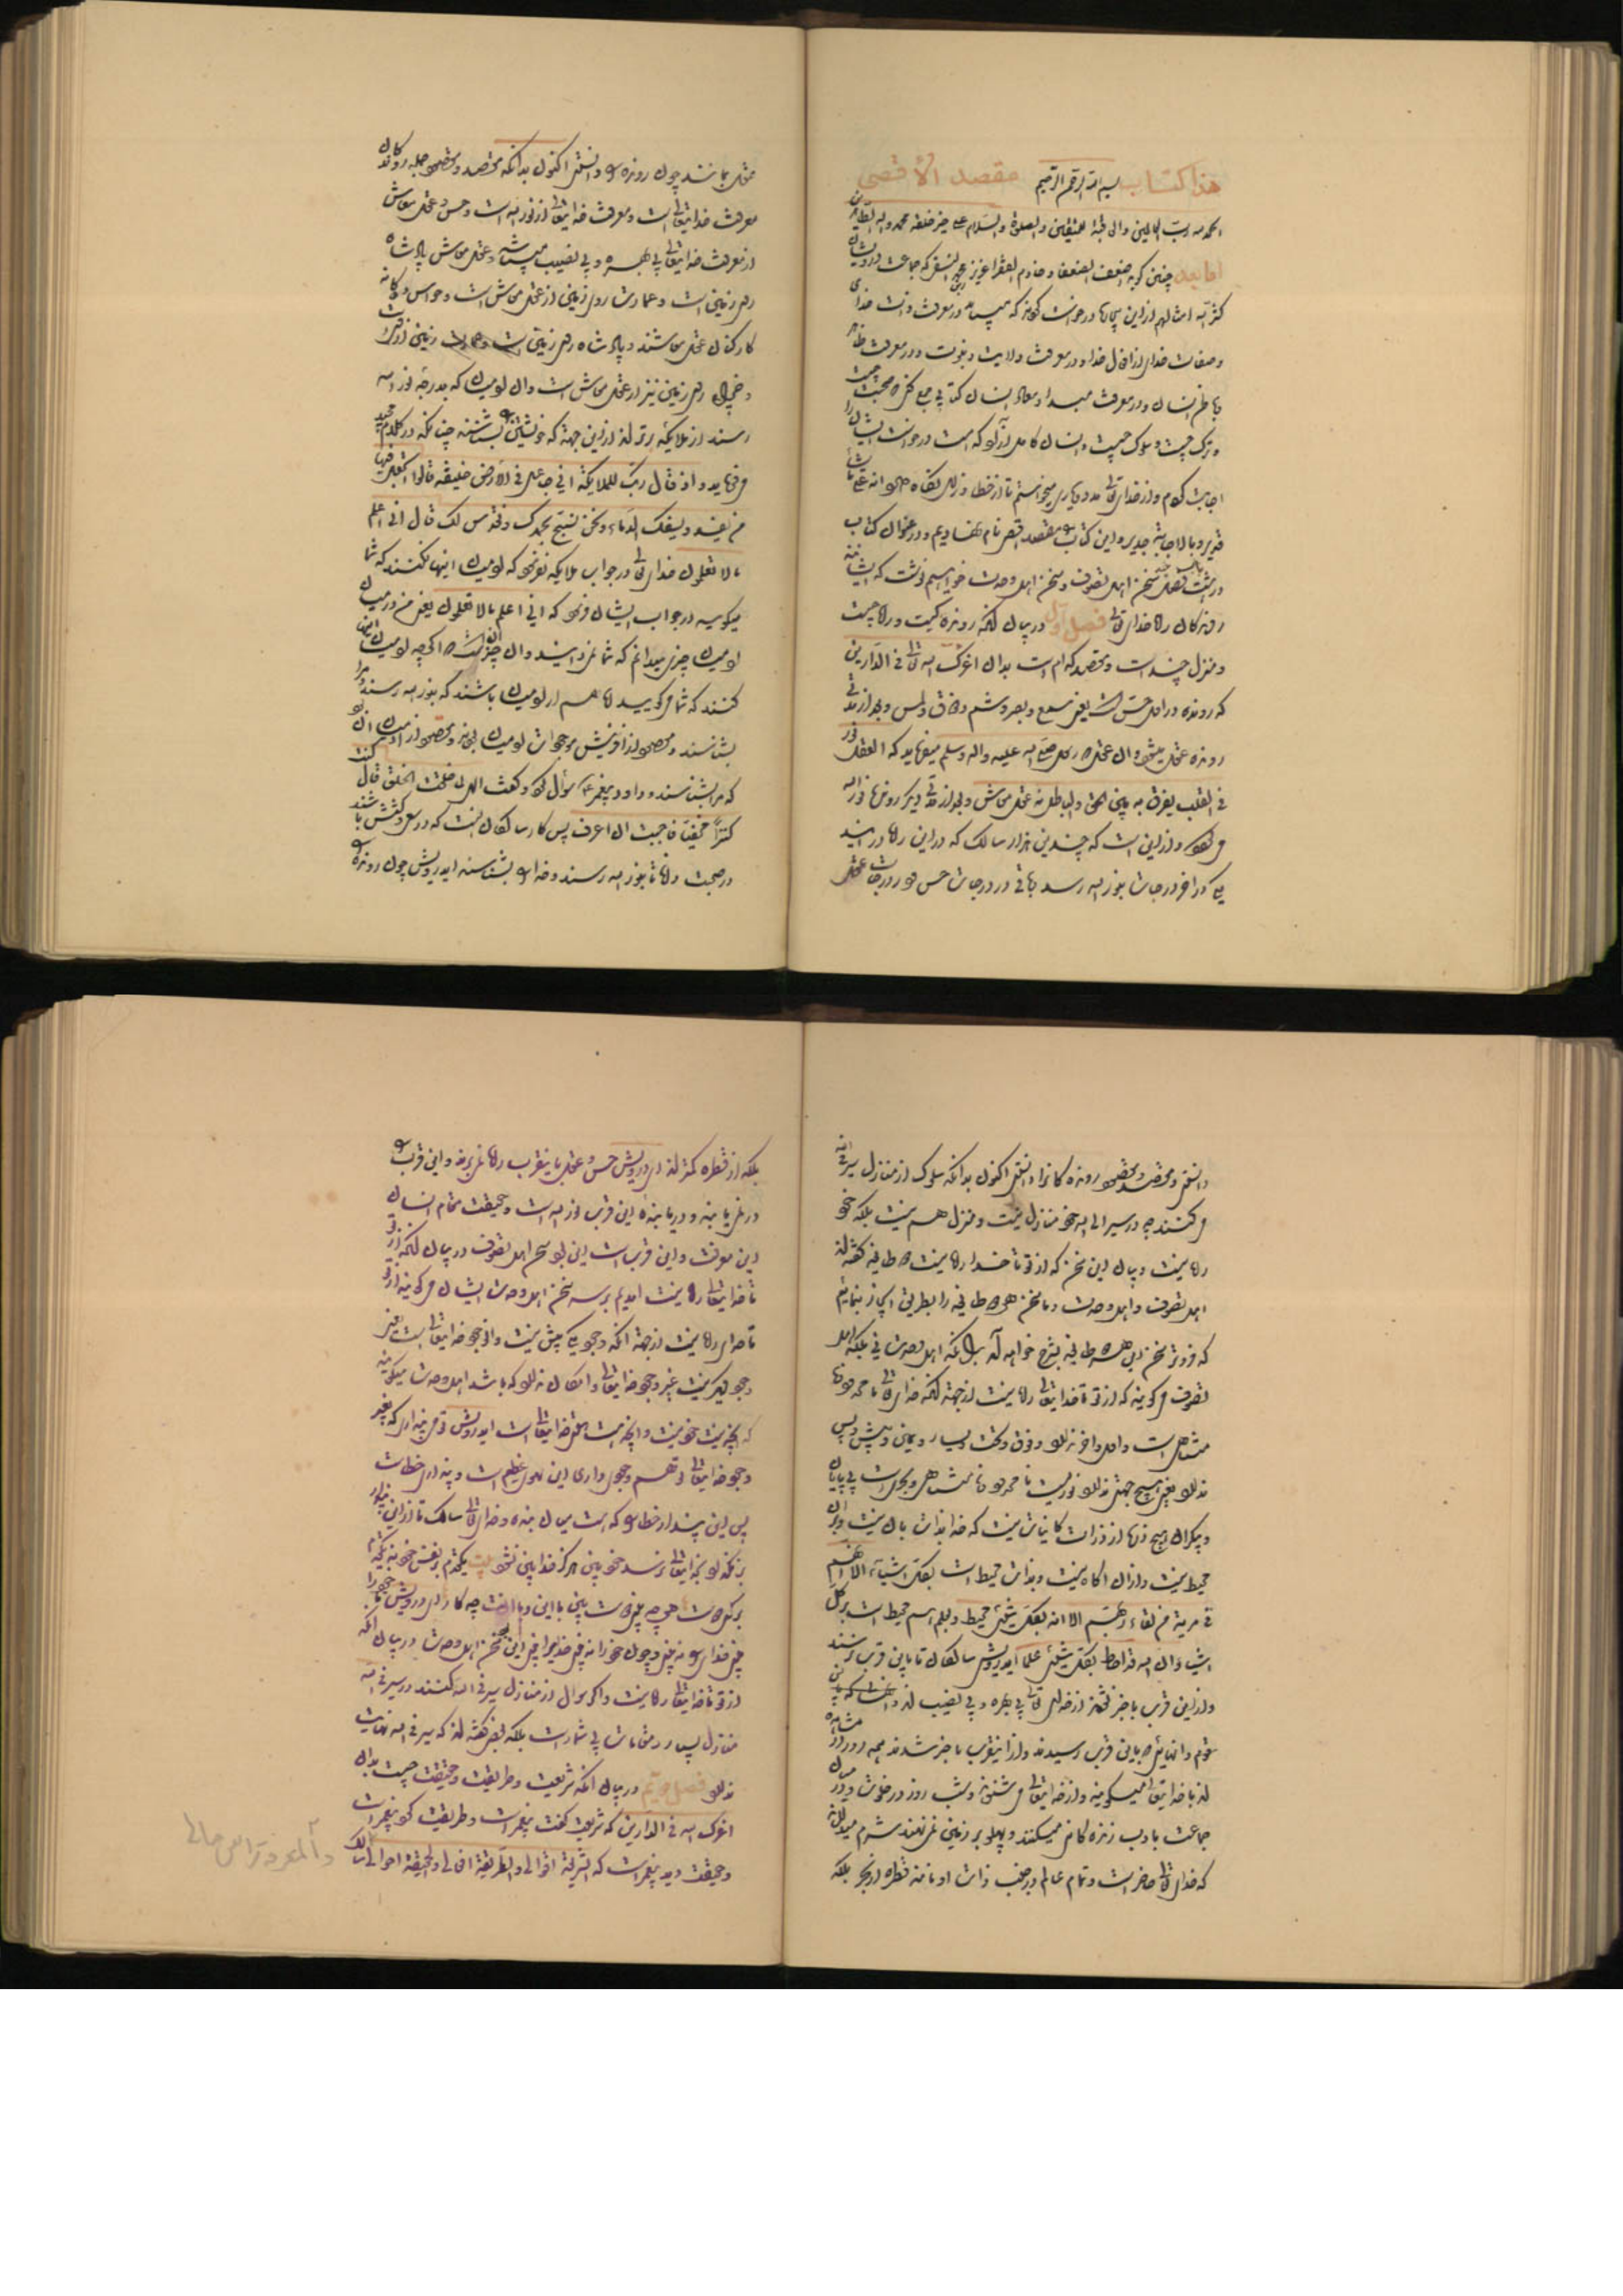 هذا کتاب بسم الله الرحمن الرحیم مقصد الأقصی
الحمد لله رب العالمین والعاقبة للمتقین والصلوة والسلام علی خیر خلقه محمد وآله الطاهرین
اما بعد چنین گوید اضعف الضعفا و خادم الفقرا عزیز بن محمد النسفی که جماعت درویشان
کثرّ الله امثالهم ازین بیچاره درخواست کردند که میباید در معرفت ذات خدای
و صفات خدای و افعال خدا و در معرفت ولایت و نبوت و در معرفت ظاهر
و باطن انسان و در معرفت مبدا و معاد انسان کتابی جمع کن و صحبت چیست
و ترک چیست و سلوک چیست و انسان کامل و آزاد کدامست درخواست ایشان را
اجابت کردم و از خدای تعالی مدد و یاری میخواستم تا از خطا و زلل نگاه دارد انه علی ما یشاء
قدیر و بالاجابة جدیر و این کتاب را مقصد اقصی نام نهادیم و در عنوان کتاب
در هشت فصل سخن اهل تصوف و سخن اهل وحدت خواهیم نوشت که ایشانند
روندگان راه خدای تعالی فصل اول در بیان آنکه رونده کیست و راه چیست
و منزل چند است و مقصد کدام است بدان اعزک الله تعالی فی الدارین
که رونده در اول حس است یعنی سمع و بصر و شم و ذوق و لمس و بعد از مدتی
رونده عقل میشود و آن عقل که رسول صلی الله علیه واله وسلم میفرماید که العقل نور
فی القلب یفرق به بین الحق والباطل نه عقل معاش و بعد از مدتی دیگر رونده نور الله
می شود و ازین است که چندین هزار سالک که درین راه درآیند
یکی در آخر درجات بنور الله رسد باقی در درجات حس و در درجات عقل
عقل بمانند چون رونده را دانستی اکنون بدانکه مقصد و مقصود جمله روندگان
معرفت خدایتعالی است و معرفت خدایتعالی از نور الله است و حس و عقل معاش
از معرفت خدایتعالی بی بهره و بی نصیب میباشد و عقل معاش پادشاه
روی زمین است و عمارت روی زمین از عقل معاش است و حواس ده گانه
کارکنان عقل معاشند و پادشاه روی زمین است و عمارت زمین
و خرابی روی زمین نیز از عقل معاش است و آن آدمیان که بدرجه نور الله
رسند از ملایکه برترند از این جهة که خویشتن را بشناسند چنانکه در کلام مجید
می فرماید و اذ قال ربک للملایکة انی جاعل فی الارض خلیفة قالوا أتجعل فیها
من یفسد ویسفک الدماء ونحن نسبح بحمدک ونقدس لک قال انی اعلم
ما لا تعلمون خدای تعالی در جواب ملایکه نفرمود که آدمیان اینها نکنند که شما
میگویید در جواب ایشان فرمود که انی اعلم ما لا تعلمون یعنی من در میان
آدمیان چیزی میدانم که شما نمیدانید و آن چیز آنست که اگرچه آدمیان اینها
کنند که شما میگویید اما هم از آدمیان باشند که بنور الله رسند و مرا
بشناسند و مقصود از آفرینش موجودات آدمیان بودند و مقصود از آدمیان آن بود
که مرا بشناسند و داود پیغمبر سؤال کرد و گفت الهی لما خلقت الخلق قال کنت
کنزاً مخفیا فاحببت ان اعرف پس کار سالکان آنست که در سعی و کوشش باشند
در صحبت دانا تا بنور الله رسند و خدا را بشناسند ایدرویش چون رونده را
دانستی و مقصد و مقصود روندگان را دانستی اکنون بدانکه سلوک از منازل سیر فی الله
می کنند چه در سیر الی الله خود منازل نیست و منزل هم نیست بلکه خود
راه نیست و بیان این سخن که از تو تا خدا راه نیست دو طایفه گفته اند
اهل تصوف و اهل وحدت و ما سخن هر دو طایفه را بطریق ایجاز بنماییم
که فروتر سخن این هر دو طایفه بشرح خواهد آمد بدانکه اهل وحدت نی بلکه اهل
تصوف می گویند که از تو تا خدایتعالی راه نیست از جهة آنکه خدای تعالی نامحدود و نا
متناهی است و اول و آخر ندارد و فوق و تحت و یسار و یمین و پیش و پس
ندارد یعنی هیچ جهتی ندارد نوریست نامحدود و نامتناهی و بحریست بی پایان
و بیکران و هیچ ذره از ذرات کاینات نیست که خدا بذات با آن نیست و بر آن
محیط نیست و از آن آگاه نیست و بذات محیط است بکل اشیاء الا انهم
فی مریة من لقاء ربهم الا انه بکل شیئ محیط و بعلم هم محیط است بر کل
اشیا و ان الله قد احاط بکل شیئ علما ایدرویش سالکان تا باین قرب نرسند
و از این قرب باخبر نشوند از خدای تعالی بی بهره و بی نصیب اند
قوم و آنهایی که باین قرب رسیدند و از این قرب باخبر شدند همه روز در مشاهده
اند با خدایتعالی میگویند و از خدایتعالی می شنوند و شب و روز در خلوت و در میان
جماعت با ادب زندگانی میکنند و پهلو بر زمین نمی نهند و شرم میدارند
که خدای تعالی حاضر است و تمام عالم در جنب ذات او مانند قطره از بحر بلکه
بلکه از قطره کمترند ای درویش حس و عقل باین قرب راه نمی برند و این قرب را
در نمی یابند و دریابنده این قرب نور الله است و حقیقت تمام انسان
این معرفت و این قرب است این بود سخن اهل تصوف در بیان آنکه از تو
تا خدایتعالی راه نیست آمدیم بر سر سخن اهل وحدت ایشان می گویند از تو
تا خدای راه نیست از جهة آنکه وجود یکی بیش نیست و آن وجود خدایتعالی است بغیر
وجود دیگر نیست غیر وجود خدایتعالی و امکان ندارد که باشد اهل وحدت میگویند
که آنچه نیست خود نیست و آنچه هست همگی خدایتعالی است ایدرویش تو می پنداری که بغیر
وجود خدایتعالی تو هم وجودی داری این سهوی عظیم است و پنداری خطاست
پس این پندار خطا سدیست میان بنده و خدای تعالی سالک تا از این پندار
نگذرد بخدایتعالی نرسد خود بین هرگز خدا بین نشود یکقدم بر نفس خود نه یکقدم
بر کوی دوست هر چه بینی دوست بین با این و با آنت چه کار ای درویش خود را
مبین خدای را بین و چون خود را ندیدی خدا را دیدی این بود سخن اهل وحدت در بیان آنکه
از تو تا خدایتعالی راه نیست و اگر سؤال از منازل سیر فی الله کنند در سیر فی الله
منازل بسیار و مقامات بی شمار است بلکه بعضی گفته اند که سیر فی الله نهایت
ندارد فصل دوم در بیان آنکه شریعت و طریقت و حقیقت چیست بدان
اعزک الله فی الدارین که شریعت گفت پیغمبر است و طریقت کرد پیغمبر است
و حقیقت دید پیغمبر است که الشریعة اقوالی والطریقة افعالی والحقیقة احوالی سالک